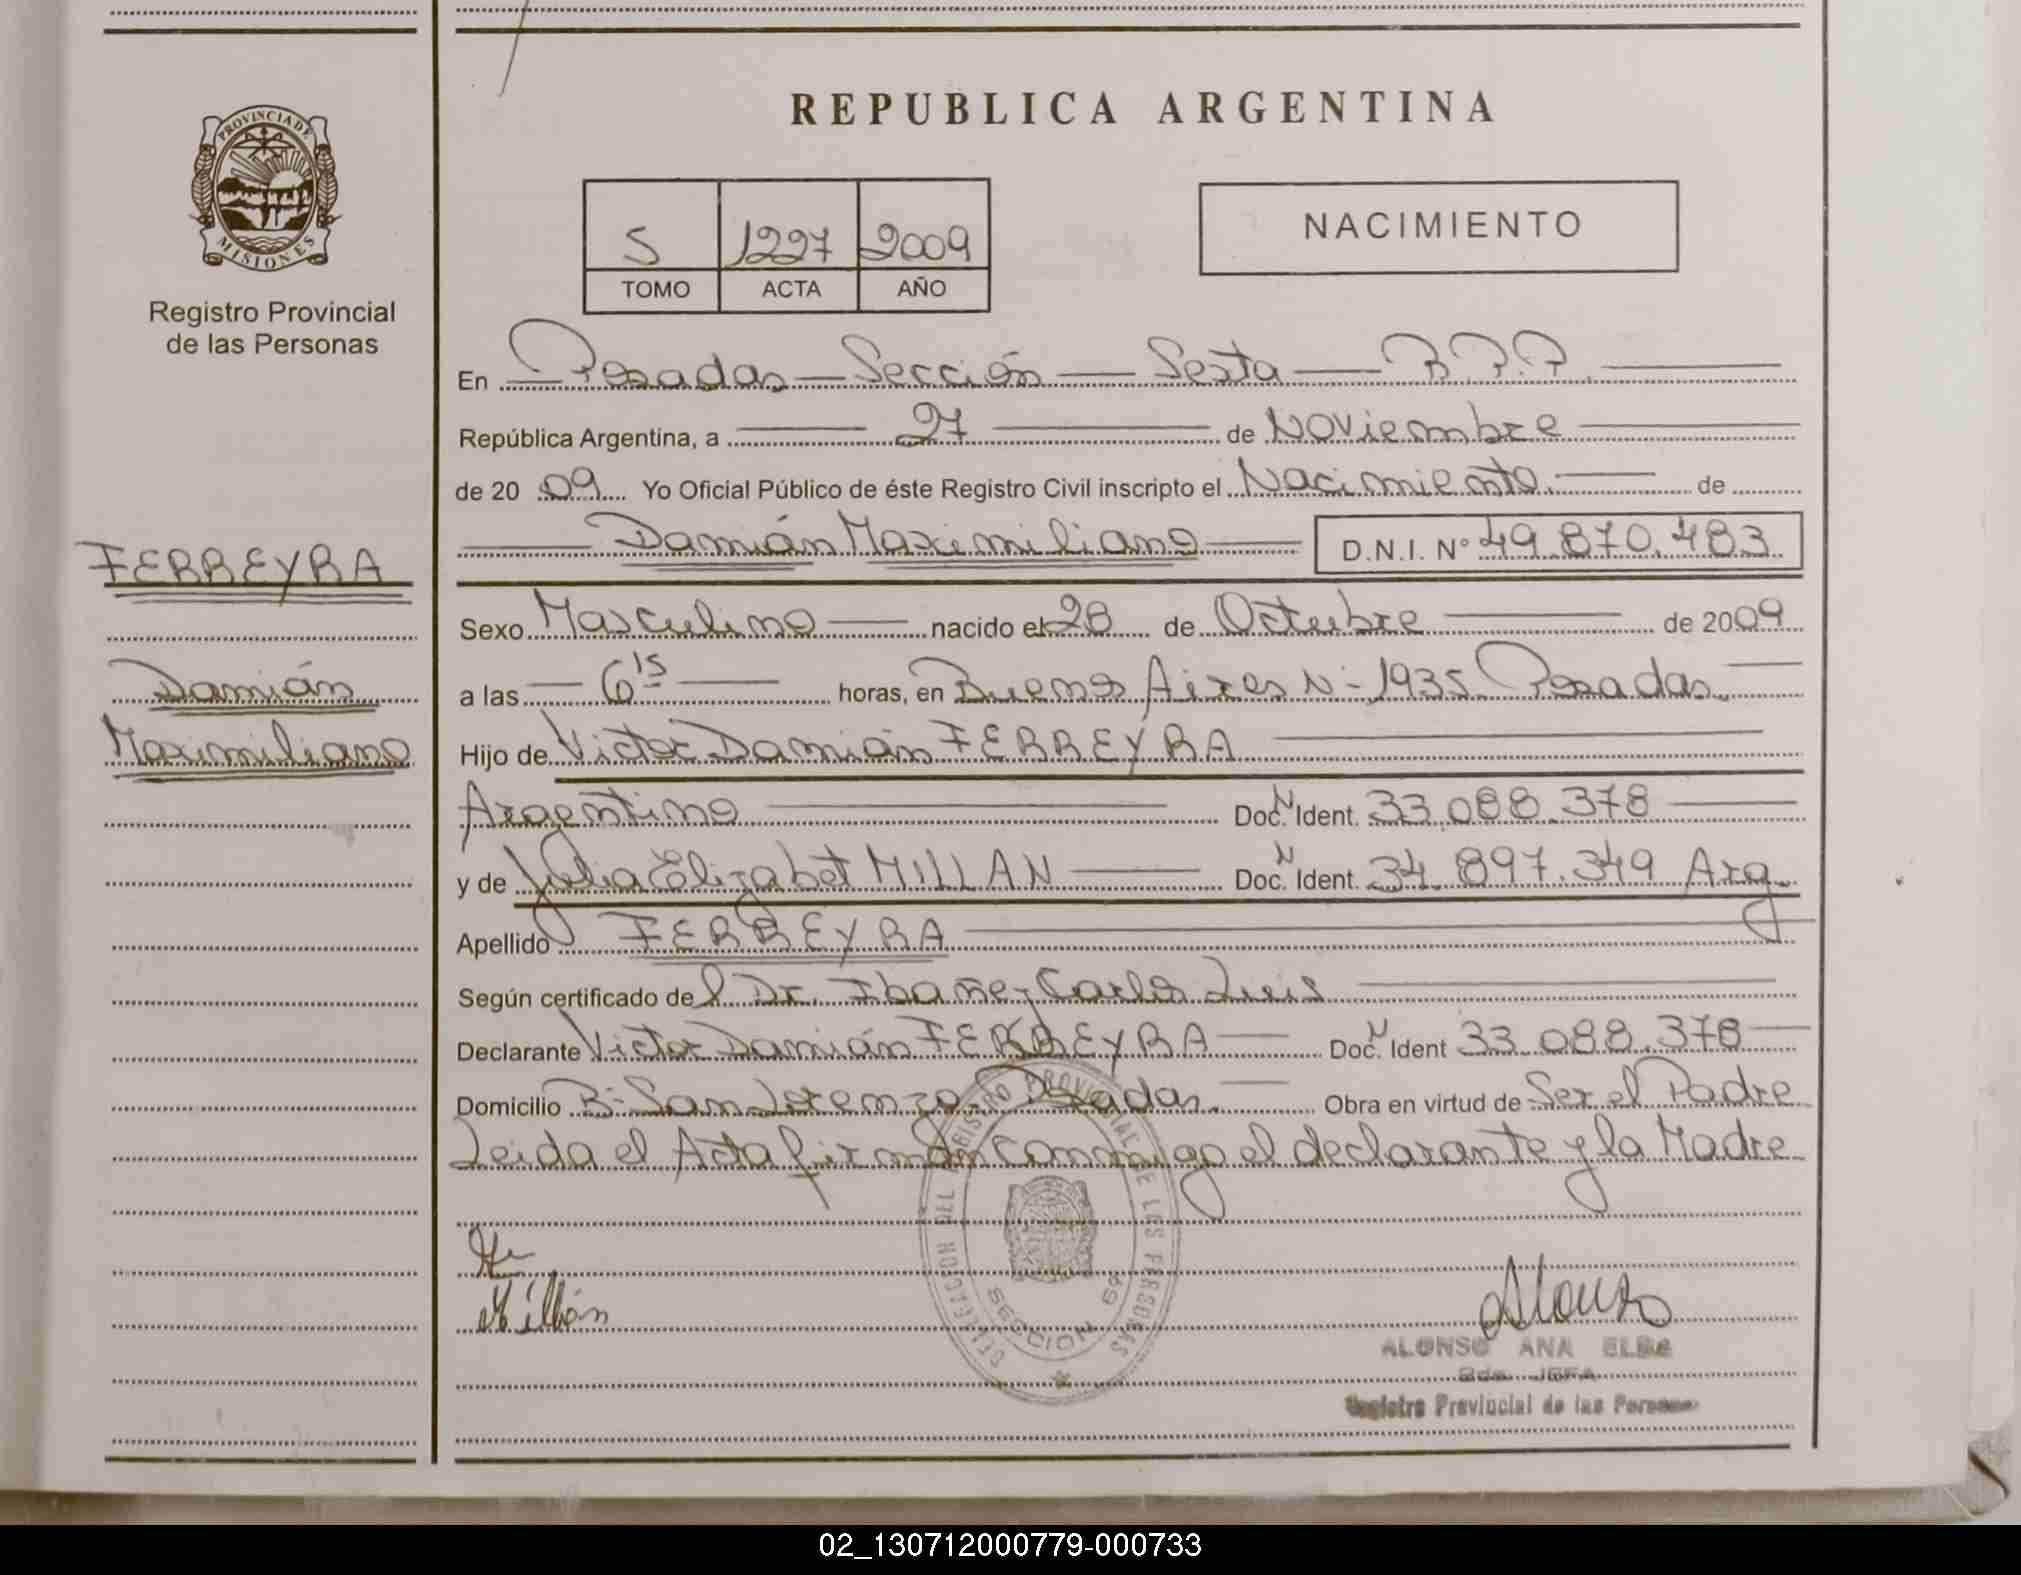 REPUBLICA ARGENTINA
PROVINCIA DE
MISIONES
Registro Provincial
de las Personas
5 1227 2009
TOMO ACTA AÑO
NACIMIENTO
En Posadas Sección Sexta
República Argentina, a 27 de Noviembre
de 2009 Yo Oficial Público de éste Registro Civil inscripto el Nacimiento de
Damián Maximiliano D.N.I. Nº 49.870.483
FERREYRA
Damián
Maximiliano
Sexo Masculino nacido el 28 de Octubre de 2009
a las 6 15 horas, en Buenos Aires Nº 1935 Posadas
Hijo de Victor Damián FERREYRA
Argentino Doc. N Ident. 33.088.378
y de Julia Elizabet MILLAN Doc. N Ident. 34.897.349 Arg.
Apellido FERREYRA
Según certificado del Dr. Ibañez Carlos Luis
Declarante Victor Damián FERREYRA Doc. N Ident 33.088.378
Domicilio Bº San Lorenzo Posadas. Obra en virtud de Ser el Padre
Leida el Acta firman conmigo el declarante y la Madre
Millán
DELEGACION DEL REGISTRO PROVINCIAL DE LAS PERSONAS
SECCION 6ª
Alonso
ALONSO ANA ELBA
JEFA
Registro Provincial de las Personas
02_130712000779-000733